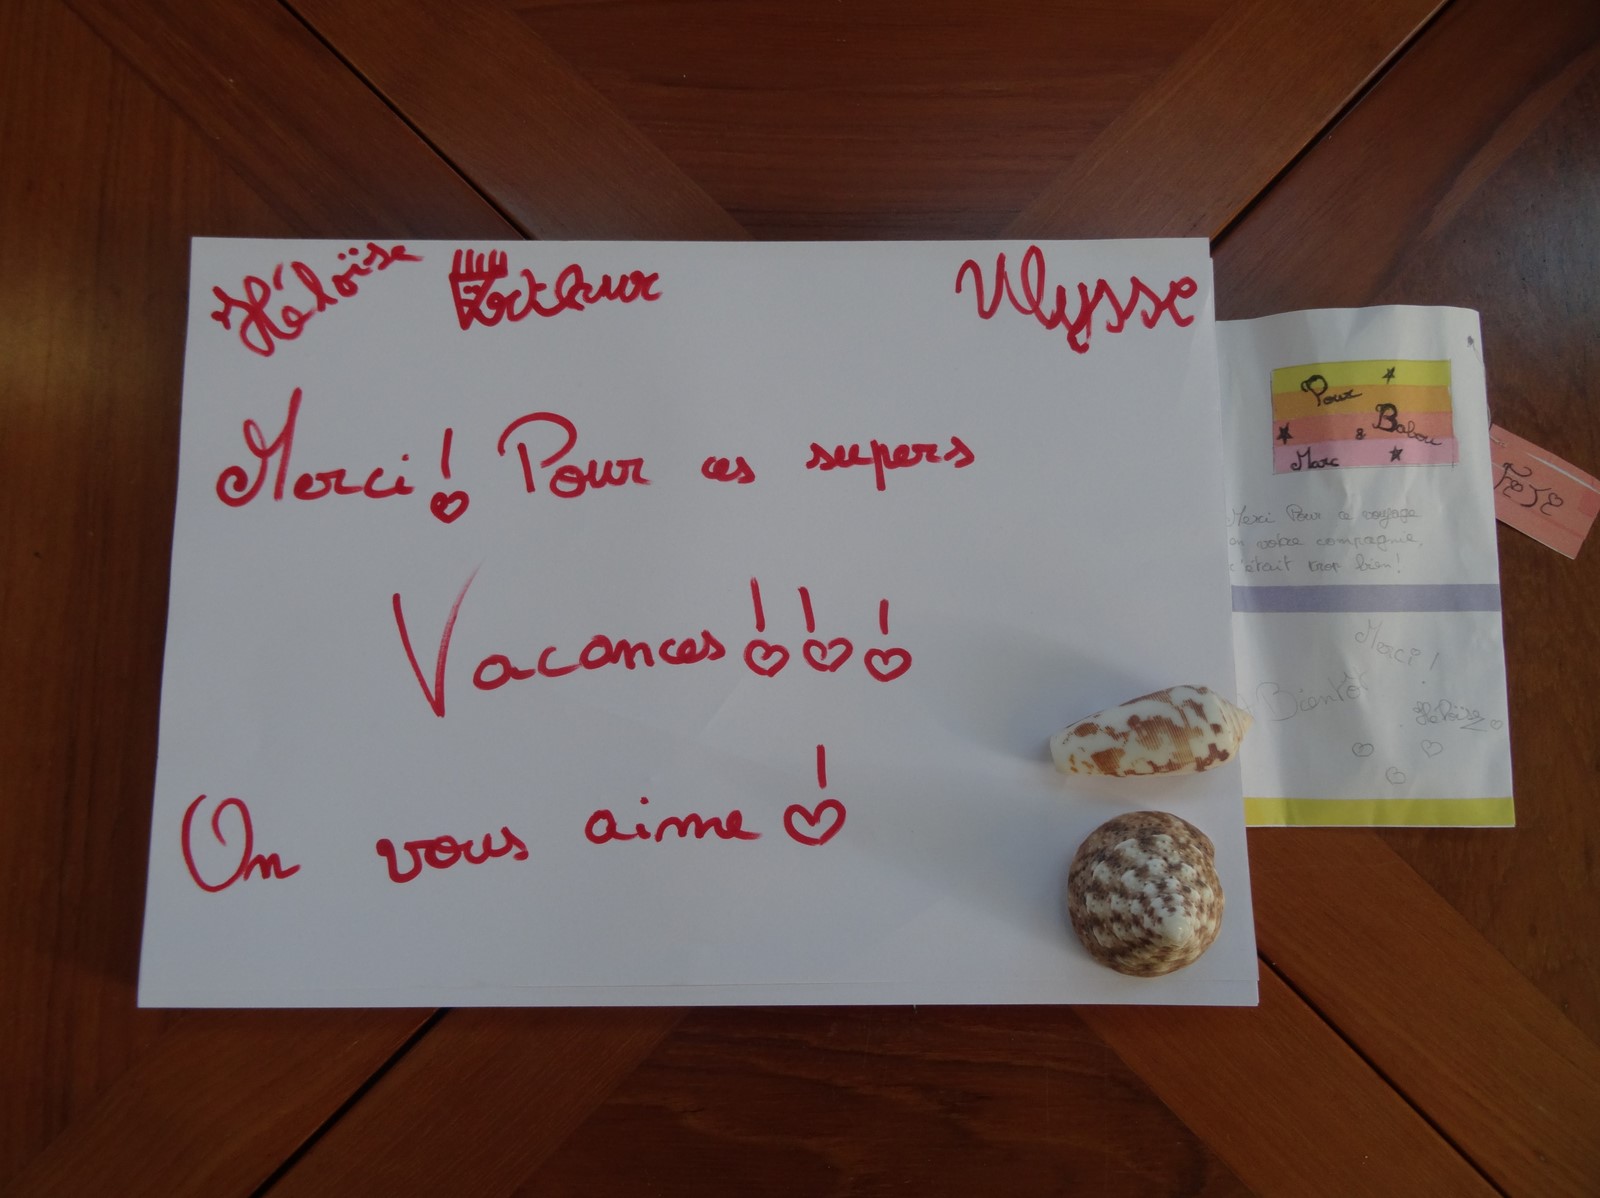 Héloïse Ulysse
Merci! Pour ces supers
Vacances!!!
On vous aime!
Pour
& Babou
Marc
Merci Pour ce voyage
en votre compagnie,
c'était trop bien!
Merci!
A Bientôt
Héloïse